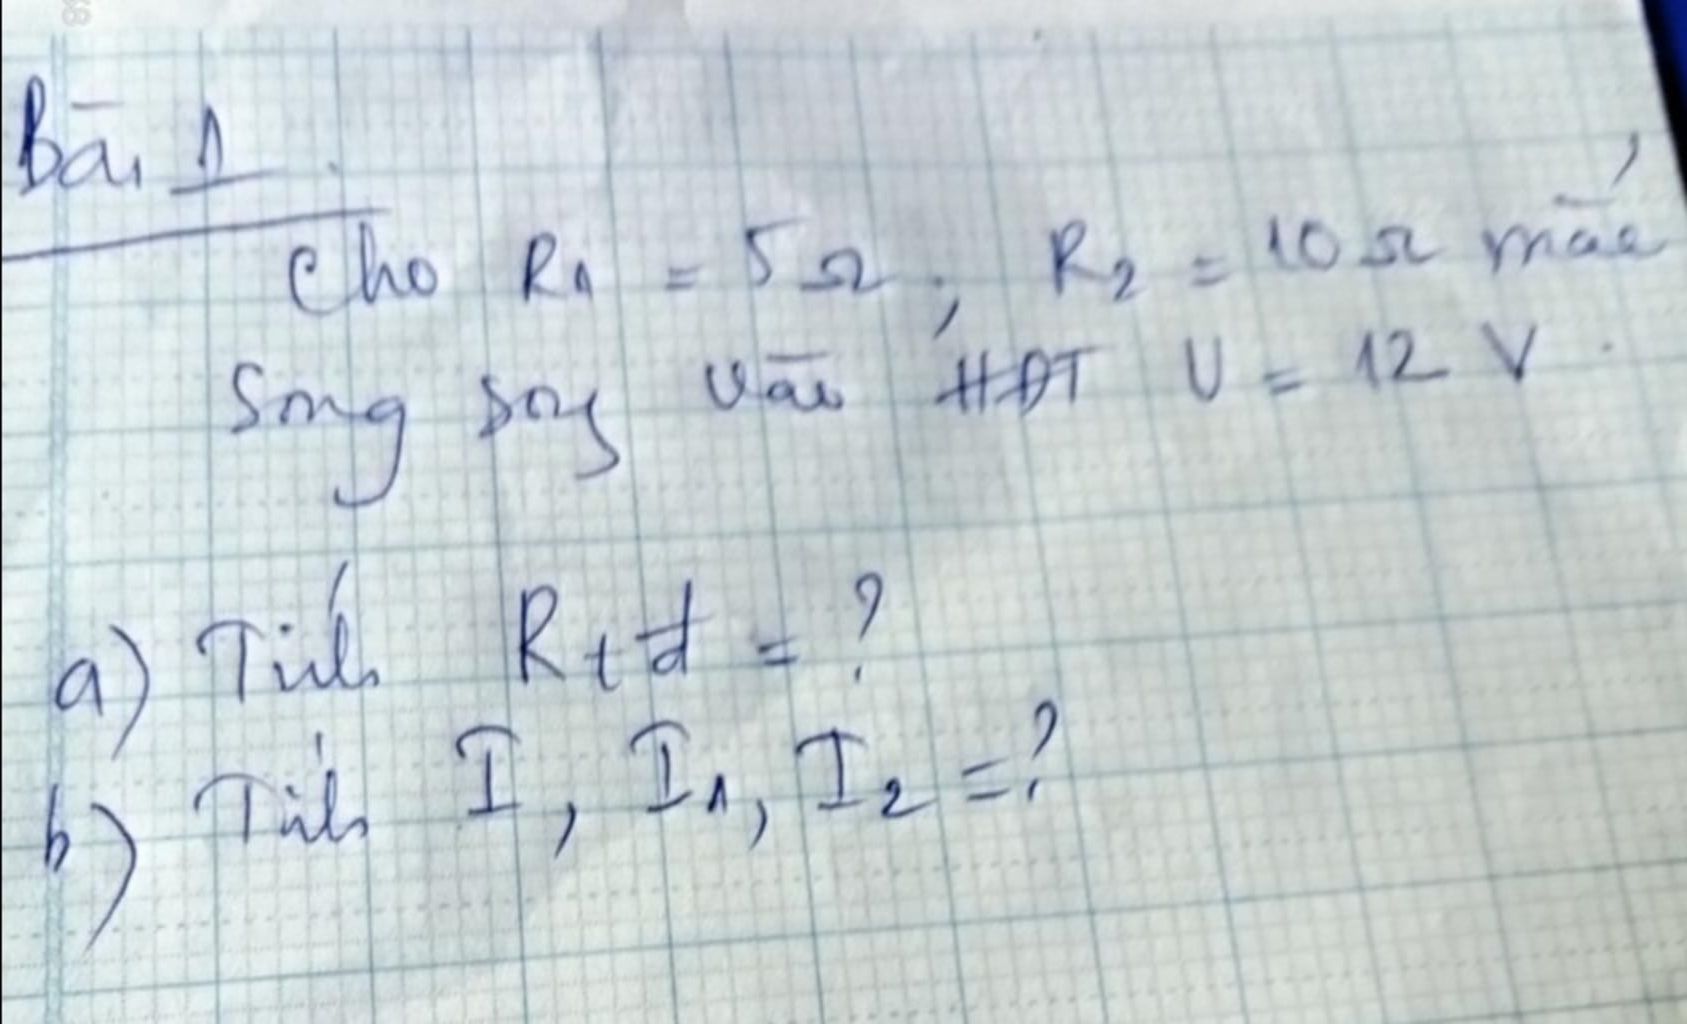 Bài 1
Cho R1 = 5Ω ; R2 = 10Ω mắc
song song vào HĐT U = 12 V.
a) Tính Rtđ = ?
b) Tính I, I1, I2 = ?